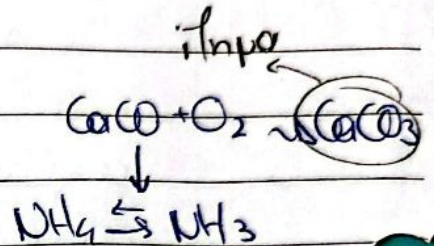 ίζημα
CaCO + O₂ → CaCO₃
↓
NH4 ⇆ NH3